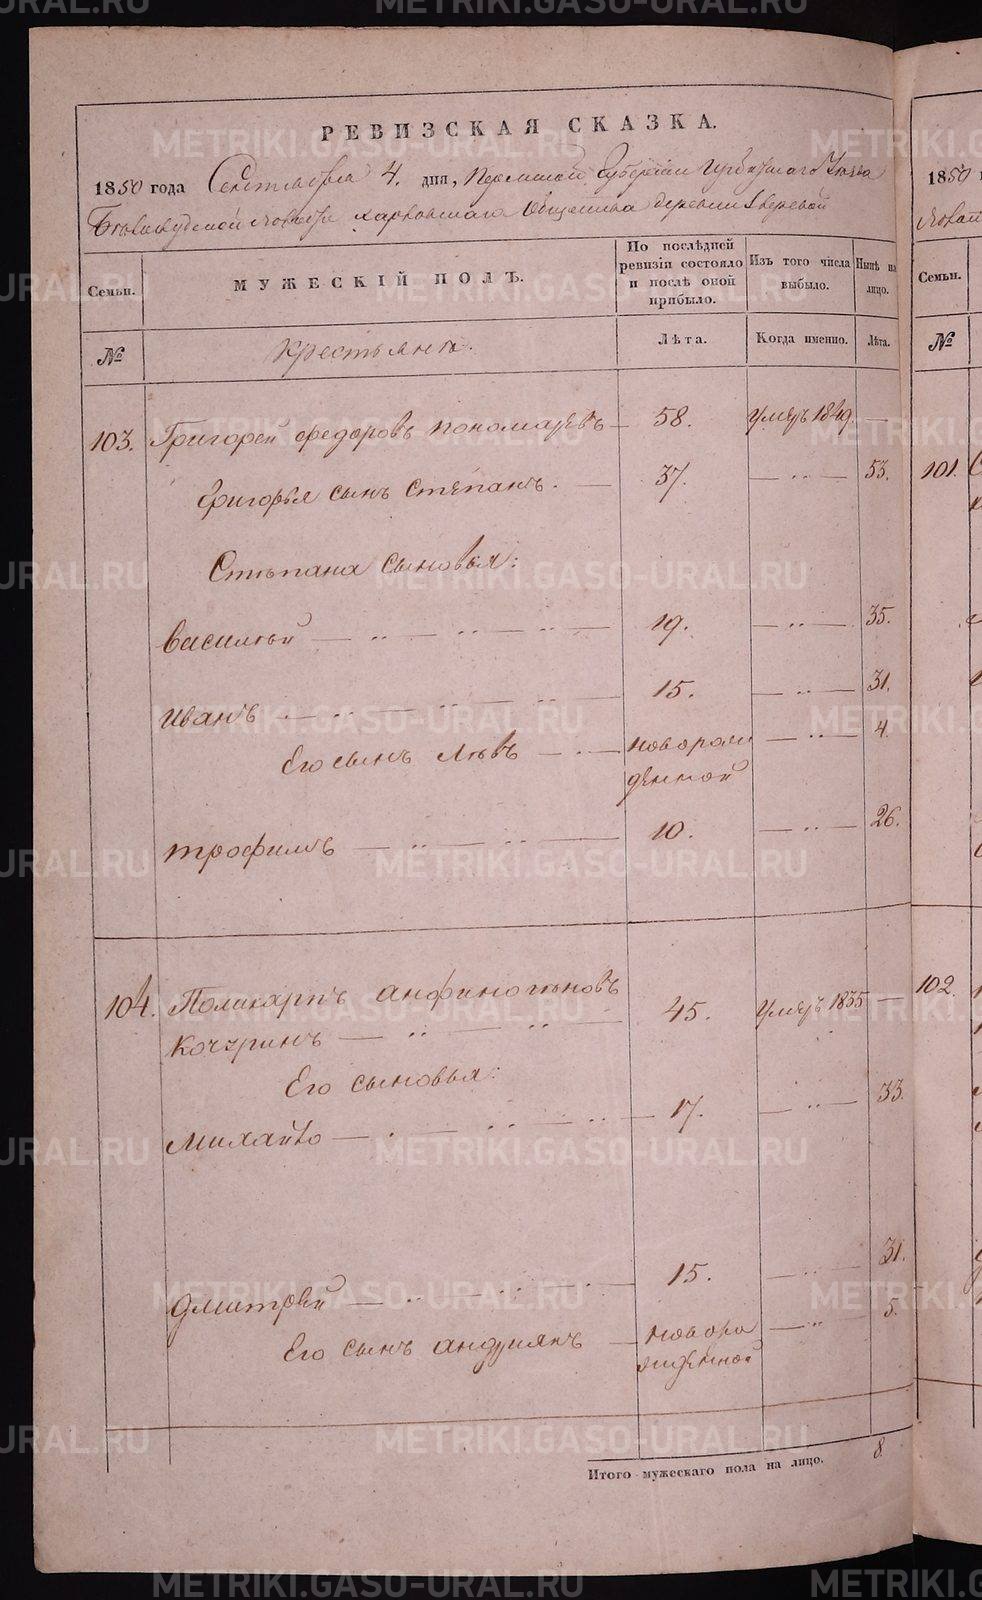 РЕВИЗСКАЯ СКАЗКА.
1850 года Сентября 4. дня, Пермской Губернии Ирбитского Уезда
Белослудской волости Харловскаго Общества деревни Зверевой
Семьи.
МУЖЕСКІЙ ПОЛЪ.
По послѣдней ревизіи состояло и послѣ оной прибыло.
Изъ того числа выбыло.
Нынѣ на лицо.
№
Крестьянъ.
Лѣта.
Когда именно.
Лѣта.
103. Григорей Федоровъ Пономаревъ 58. умеръ 1849. —
Григорья сынъ Степанъ. — 37. — „ — 53.
Степана сыновья:
Василей — „ — „ — „ — 19. — „ — 35.
Иванъ — „ — „ — „ — 15. — „ — 31.
Его сынъ Левъ — „ — новорож — „ — 4.
денной
Трофимъ — „ — „ — 10. — „ — 26.
104. Поликарпъ Анфиногеновъ 45. умеръ 1835 —
Кочуринъ — „ — „ —
Его сыновья:
Михайло — „ — „ — „ — 17. — „ — 33.
Дмитрей — „ — „ — „ — 15. — „ — 31.
Его сынъ Андриянъ — новоро — „ — 5.
жденной
Итого мужескаго пола на лицо. 8.
1850
Семьи.
№
101.
102.
METRIKI.GASO-URAL.RU